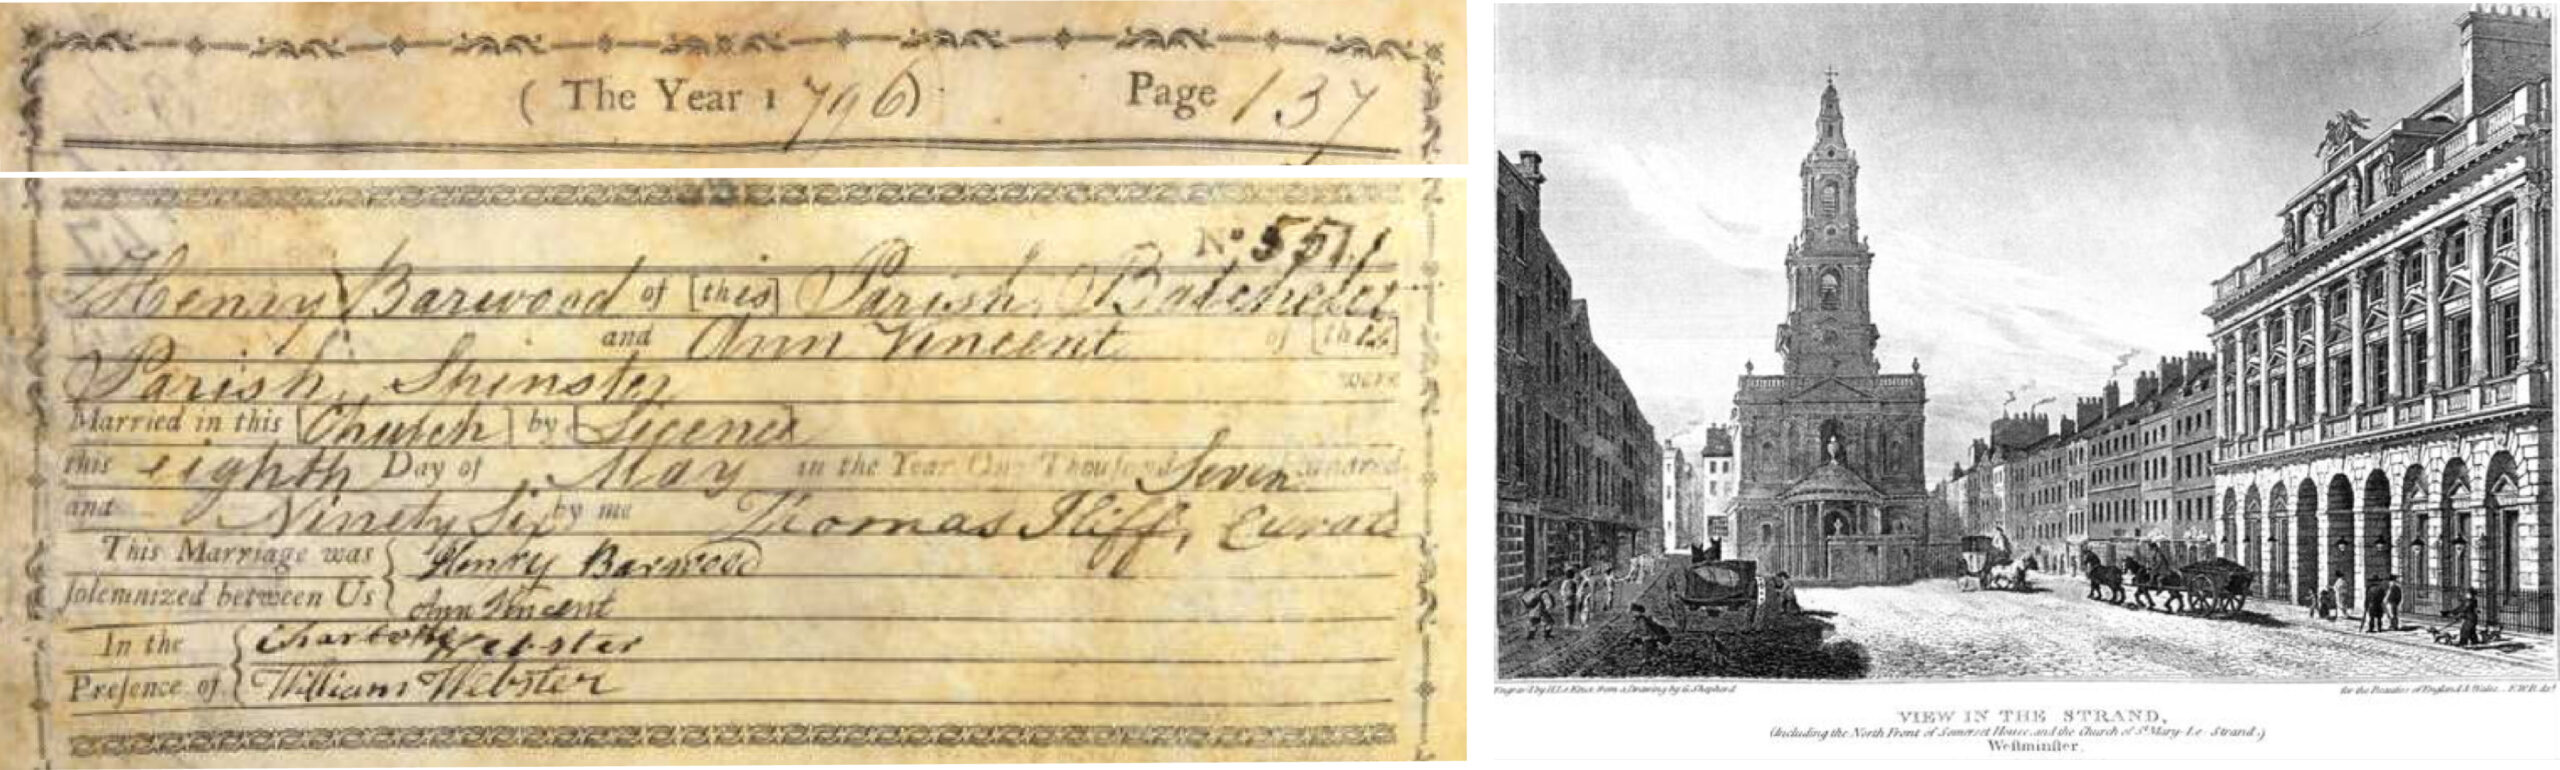 ( The Year 1796) Page 137
No 551
Henry Barwood of [this] Parish, Batcheler
and Ann Vincent of [this]
Parish, Spinster were
Married in this [Church] by [Licence]
this eighth Day of May in the Year One Thousand Seven Hundred
and Ninety Six by me Thomas Iliff, Curate
This Marriage was solemnized between Us { Henry Barwood
Ann Vincent
In the Presence of { Charlotte Webster
William Webster
Engrav'd by H. Le Keux from a Drawing by G. Shepherd
for the Beauties of England & Wales
VIEW IN THE STRAND,
(Including the North Front of Somerset House, and the Church of St Mary-Le-Strand.)
Westminster.